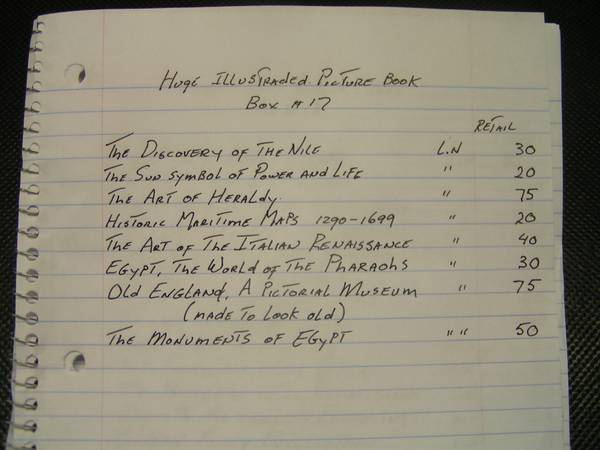 Huge Illustraded Picture Book
Box # 17
Retail
The Discovery of The Nile L.N 30
The Sun Symbol of Power and Life " 20
The Art of Heraldy " 75
Historic Maritime Maps 1290-1699 " 20
The Art of The Italian Renaissance " 40
Egypt, The World of The Pharaohs " 30
Old England, A Pictorial Museum " 75
(made to look old)
The Monuments of Egypt " " 50